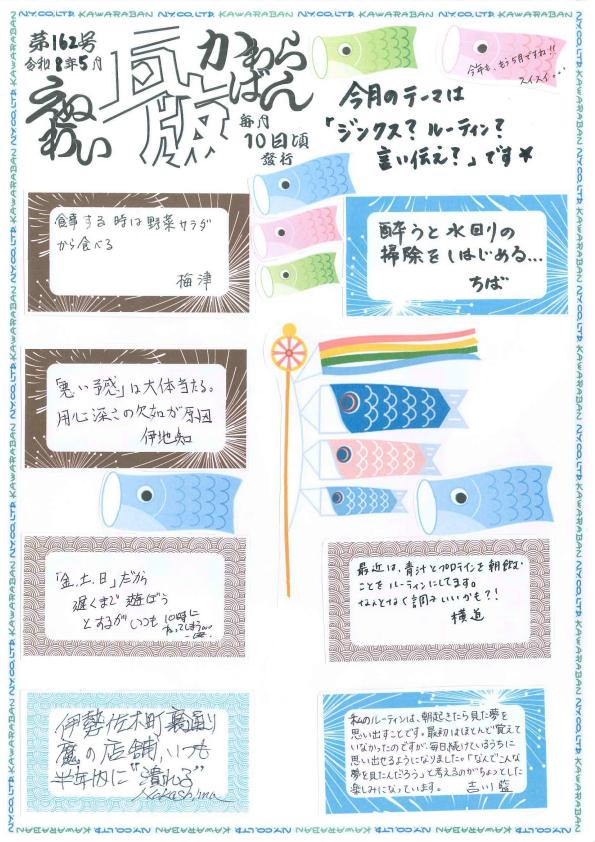 第162号
令和8年5月
瓦版
かわら
ばん
えぬ
わい
毎月
10日頃
発行
今年も、もう5月ですね!!
スイスイ...
今月のテーマは
「ジンクス? ルーティン?
言い伝え?」です★
食事する時は野菜サラダ
から食べる
梅津
酔うと水回りの
掃除をしはじめる...
ちば
「悪い予感」は大体当たる。
用心深さの欠如が原因
伊地知
「金、土、日」だから
遅くまで遊ぼう
とするがいつも10時に
ねってしまう
最近は、青汁とプロテインを朝飲む
ことをルーティンにしてます。
なんとなく調子いいかも?!
横道
伊勢佐木町裏通り
魔の店舗、いつも
半年内に"潰れる"
Nakashima
私のルーティンは、朝起きたら見た夢を
思い出すことです。最初はほとんど覚えて
いなかったのですが、毎日続けているうちに
思い出せるようになりました。「なんでこんな
夢を見たんだろう」と考えるのがちょっとした
楽しみになっています。 吉川 藍
N.Y.CO.,LTD. KAWARABAN